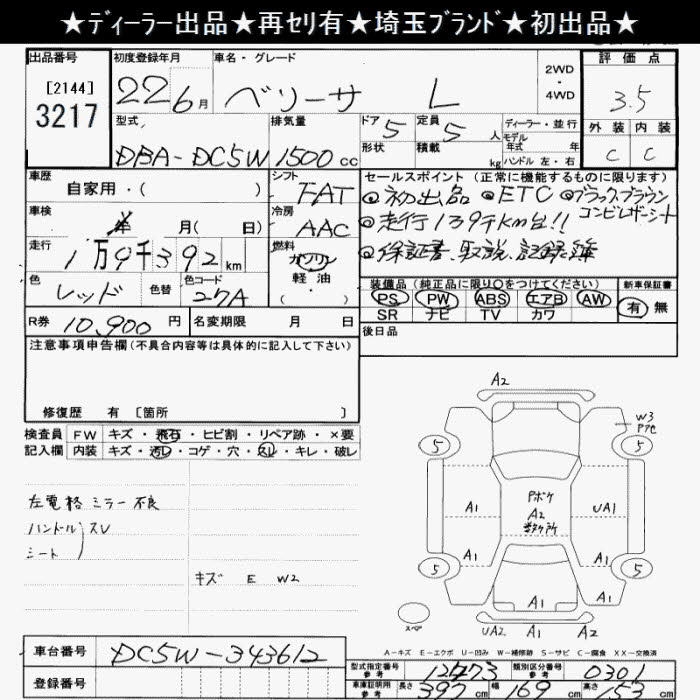 ★ディーラー出品★再セリ有★埼玉ブランド★初出品★
出品番号
[2144]
3217
初度登録年月
22年 6月
車名・グレード
ベリーサ L
2WD
・
4WD
評価点
3.5
外装 内装
C C
型式
DBA-DC5W
排気量
1500 cc
ドア 5
形状
定員 5 人
積載 kg
ディーラー・並行
モデル
年式 年
ハンドル 左・右
車歴
自家用・( )
シフト
FAT
車検
年 月( 日)
冷房
AAC
走行
1万9千392 km
燃料
ガソリン
軽油
・
( )
色
レッド
色替
色コード
27A
セールスポイント (正常に機能するものに限ります)
◎初出品 ◎ETC ◎ブラックブラウン
コンビレザーシート
◎走行1.9千km台!!
◎保証書、取説、記録簿
装備品 (純正品に限り○をつけてください)
PS PW ABS エアB AW
SR ナビ TV カワ
新車保証書
有 無
R券 10,900 円
名変期限 月 日
後日品
注意事項申告欄(不具合内容等は具体的に記入して下さい)
修復歴 有 [箇所 ]
検査員 FW キズ・飛石・ヒビ割・リペア跡・×要
記入欄 内装 キズ・汚れ・コゲ・穴・スレ・キレ・破レ
左電格ミラー不良
ハンドル スレ
シート
キズ E W2
A2
W3
P7セ
5 5
A1 Pボケ UA1
A2
A1 A1
5 5
A1 A1
スペア
UA2 A1 A2
A-キズ E-エクボ U-凹み W-補修跡 S-サビ C-腐食 XX-交換済
車台番号 DC5W-343612
登録番号
型式指定番号
参考
12473
類別区分番号
参考
0301
車庫証明用
参考
長さ 397 cm 幅 169 cm 高さ 153 cm